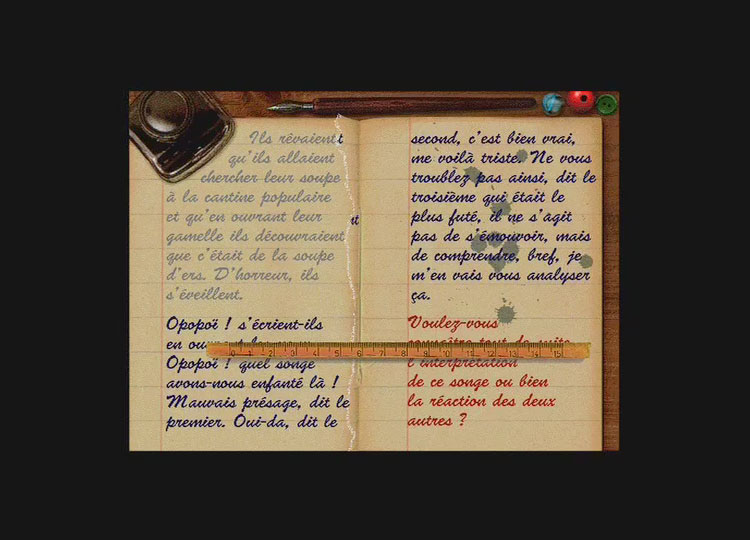 Ils rêvaient
qu'ils allaient
chercher leur soupe
à la cantine populaire
et qu'en ouvrant leur
gamelle ils découvraient
que c'était de la soupe
d'ers. D'horreur, ils
s'éveillent.
Opopoï ! s'écrient-ils
en
Opopoï ! quel songe
avons-nous enfanté là !
Mauvais présage, dit le
premier. Oui-da, dit le
second, c'est bien vrai,
me voilà triste. Ne vous
troublez pas ainsi, dit le
troisième qui était le
plus futé, il ne s'agit
pas de s'émouvoir, mais
de comprendre, bref, je
m'en vais vous analyser
ça.
Voulez-vous
connaître tout de suite
l'interprétation
de ce songe ou bien
la réaction des deux
autres ?
0 1 2 3 4 5 6 7 8 9 10 11 12 13 14 15